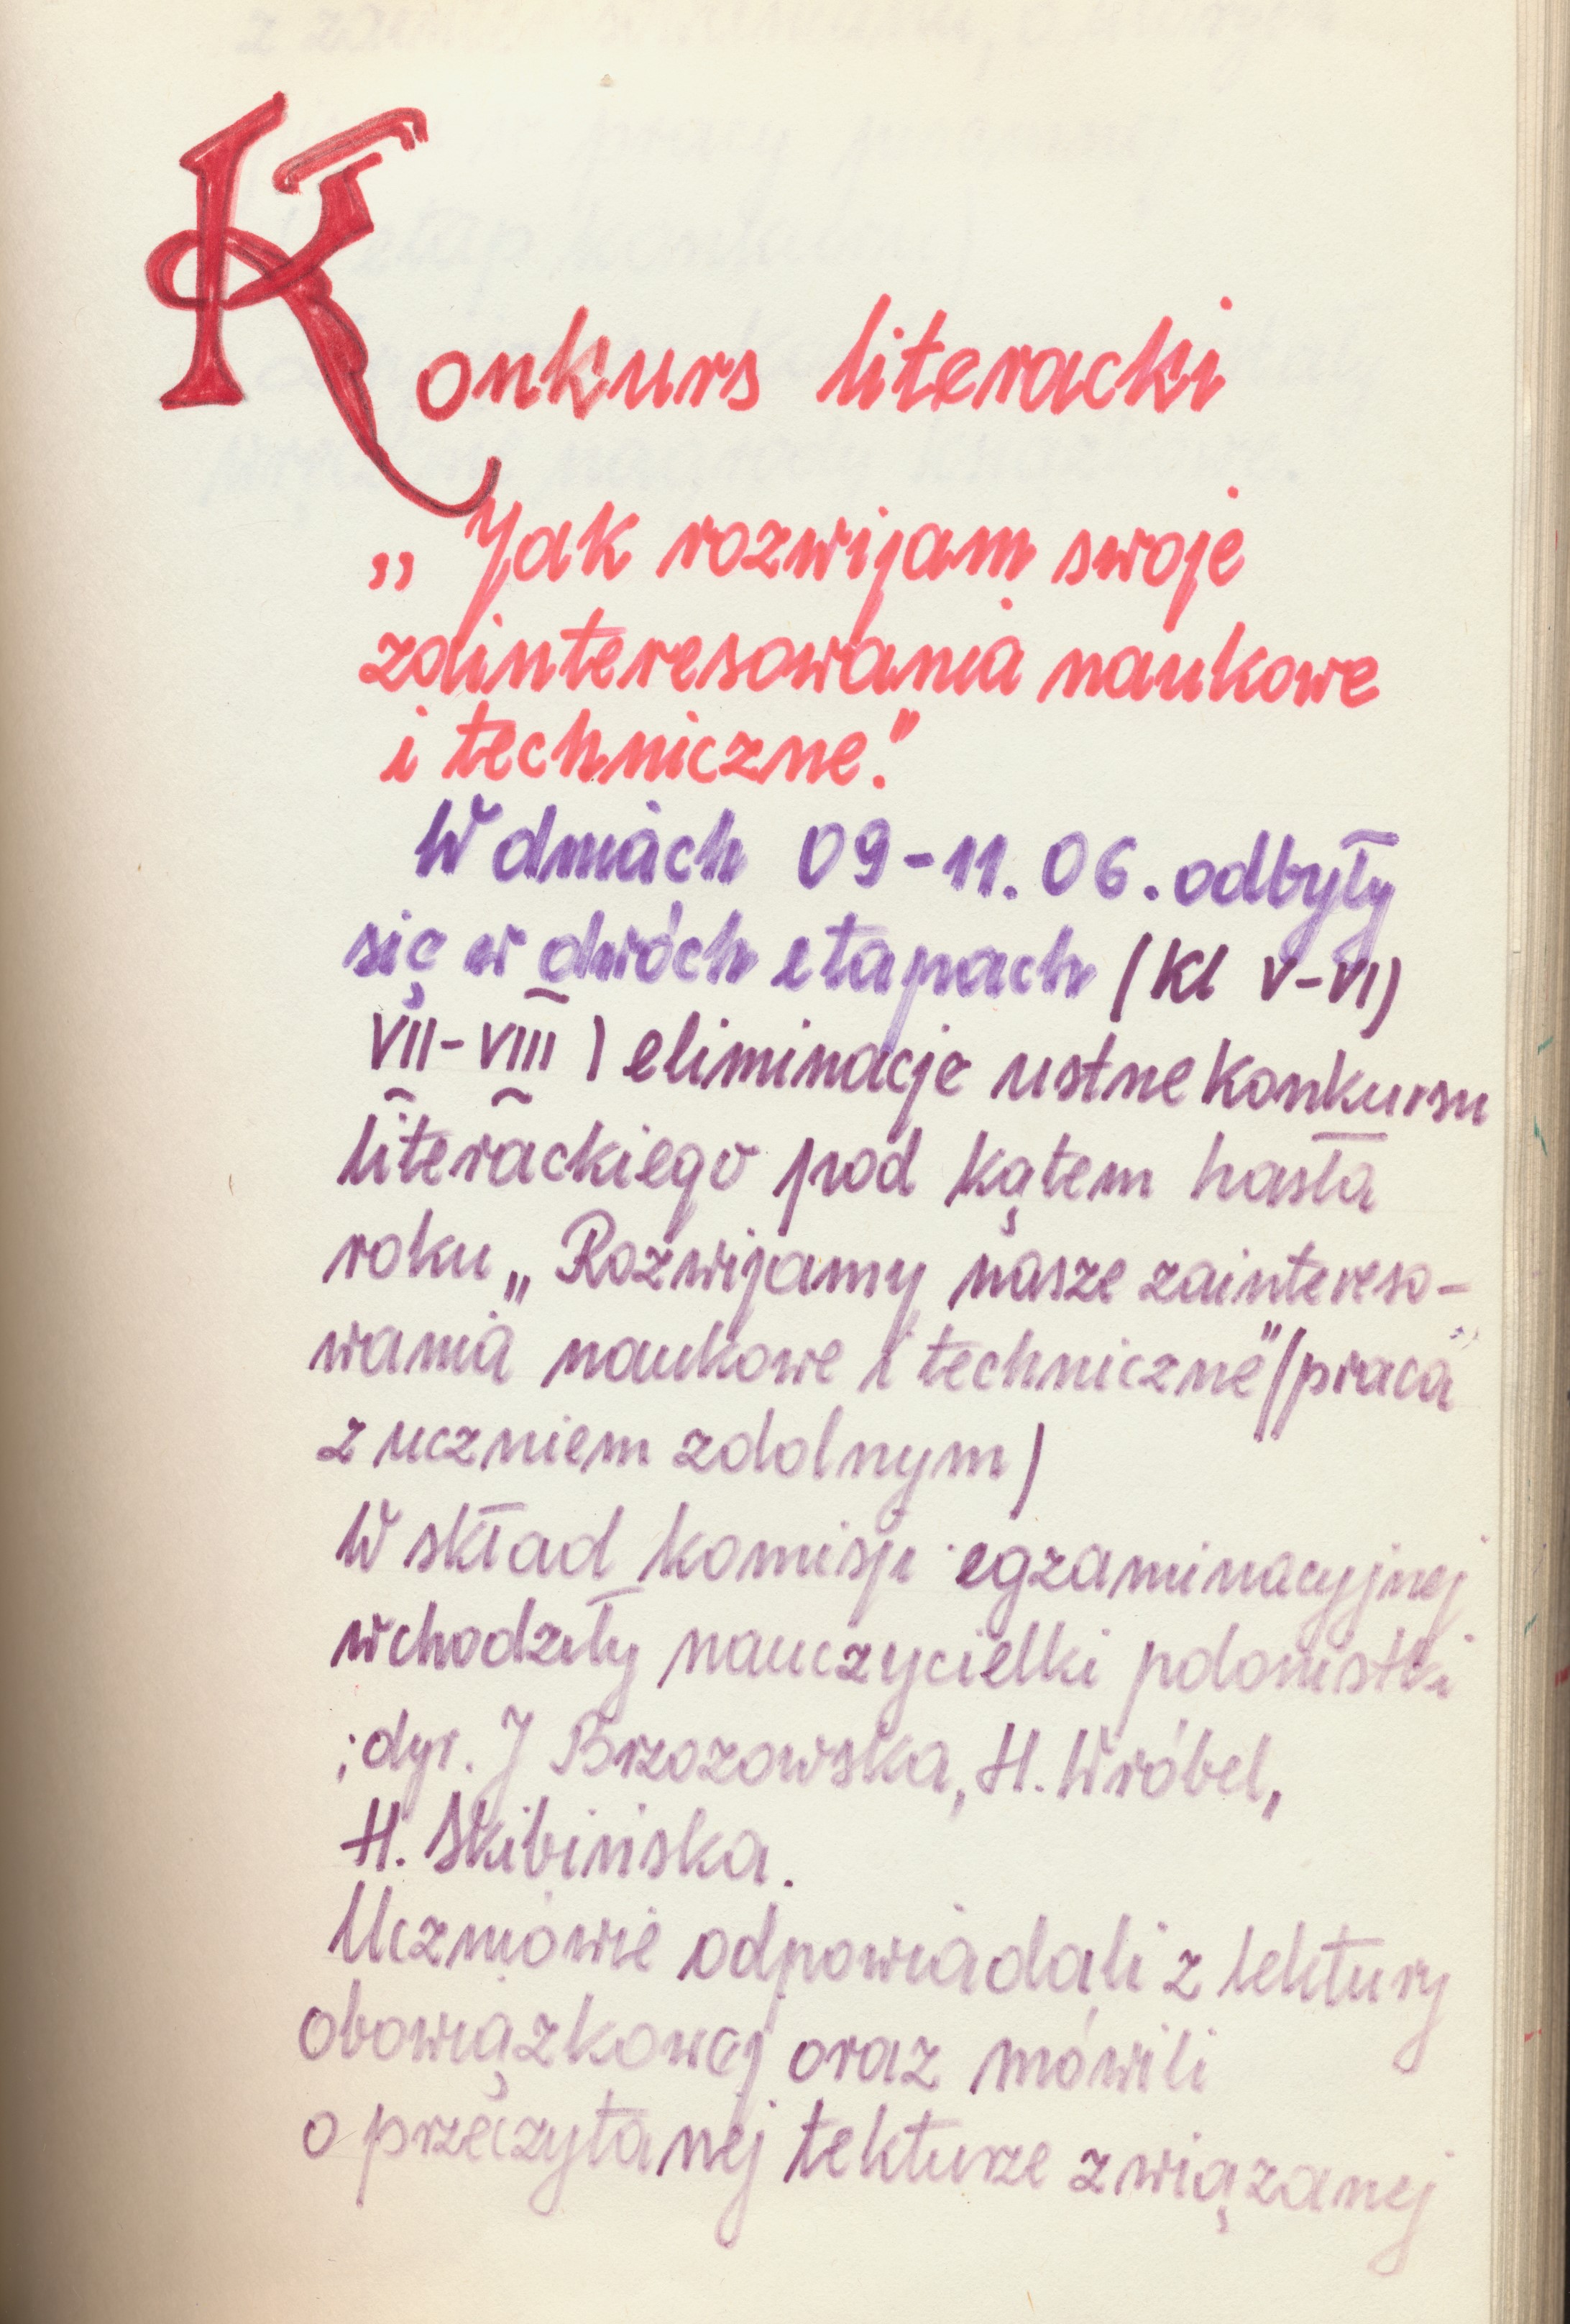 Konkurs literacki
„Jak rozwijam swoje
zainteresowania naukowe
i techniczne."
W dniach 09-11.06. odbyły
się w dwóch etapach (kl V-VI)
VII-VIII) eliminacje ustne konkursu
literackiego pod kątem hasła
roku „Rozwijamy nasze zaintereso-
wania naukowe i techniczne"/(praca
z uczniem zdolnym)
W skład komisji egzaminacyjnej
wchodziły nauczycielki polonistki
;dyr. J Brzozowska, H. Wróbel,
H. Skibińska.
Uczniowie odpowiadali z lektury
obowiązkowej oraz mówili
o przeczytanej lekturze związanej